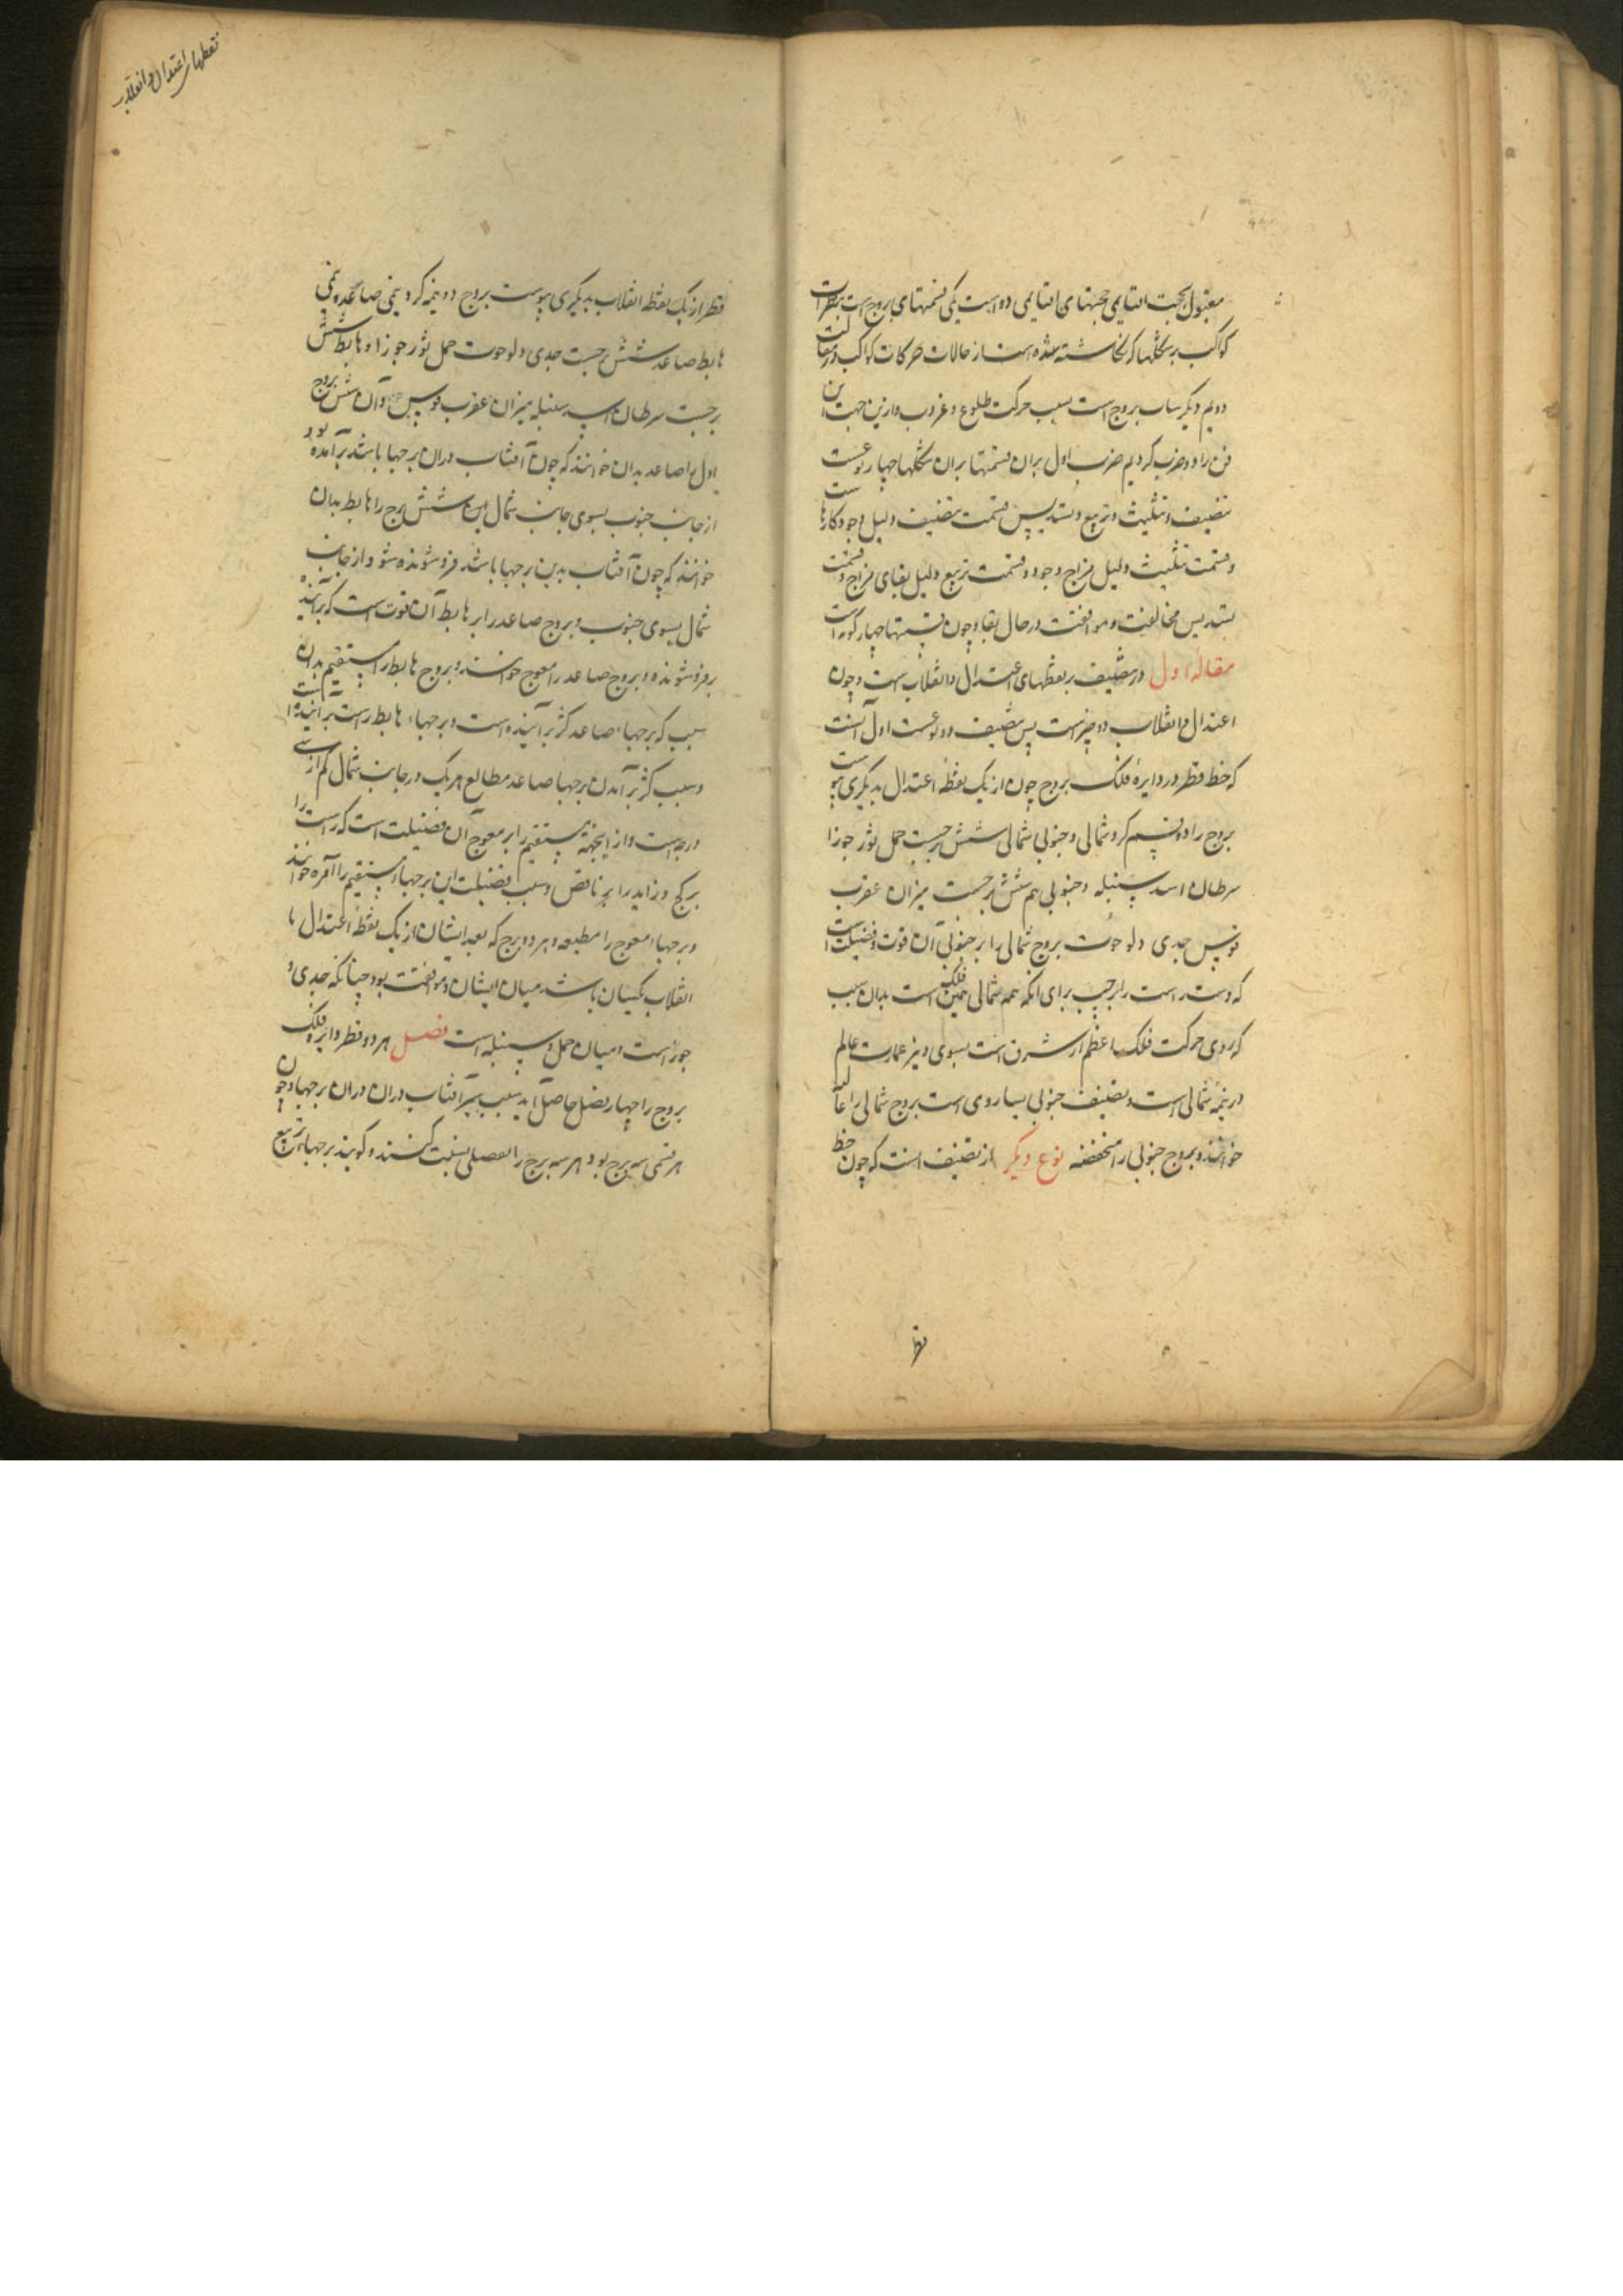 مقبول بحجت اقتایمی جهتهای اقتایمی دو است یکی قسمتهای بروج است بنظرات
کواکب بر شکلها که نگاشته شده است از حالات حرکات کواکب در مقالت
دویم دیگر ساب بروج است بسبب حرکت طلوع و غروب و ازین جهت این
فن را دو ضرب کردیم ضرب اول بر آن قسمتها بر آن شکلها چهار نوعست
تنصیف و تثلیث و تربیع و تسدیس قسمت تنصیف دلیل وجود کارهاست
و قسمت تثلیث دلیل مزاج وجود و قسمت تربیع دلیل بقای مزاج و قسمت
تسدیس مخالفت و موافقت در حال بقا و چون قسمتها چهار گونه است
مقاله اول در تنصیف بر نقطهای اعتدال و انقلاب است و چون
اعتدال و انقلاب دو چیزست پس تنصیف دو نوعست اول آنست
که خط قطر در دایره فلک بروج چون از یک نقطه اعتدال بدیگری پیوست
بروج را دو قسم کرد شمالی و جنوبی شمالی شش برجست حمل ثور جوزا
سرطان اسد سنبله و جنوبی هم شش برجست میزان عقرب
قوس جدی دلو حوت بروج شمالی را بر جنوبی آن قوت و فضیلت است
که دست راست را بر چپ برای آنکه همه شمالی یمین فلک است بدان سبب
که روی حرکت فلک اعظم از شرق است بسوی و نیز عمارت عالم
در نیمه شمالی است و تنصیف جنوبی یسار وی است بروج شمالی را عالیه
خوانند و بروج جنوبی را منخفضه نوع دیگر از تنصیف انست که چون خط
قطر
نقطهای اعتدال و انقلاب
قطر از یک نقطه انقلاب بدیگری پیوست بروج دو نیمه کرد نیمی صاعد و نیمی
هابط صاعد شش برجست جدی دلو حوت حمل ثور جوزا و هابط شش
برجست سرطان اسد سنبله میزان عقرب قوس و آن شش بروج
اول را صاعد بدان خوانند که چون آفتاب دران برجها باشد برآمده بود
از جانب جنوب بسوی جانب شمال این شش برج را هابط بدان
خوانند که چون آفتاب بدین برجها باشد فرو شونده شو و از جانب
شمال بسوی جنوب و بروج صاعد را بر هابط آن قوت است که برآینده
بر فرو شونده و بروج صاعد را معوج خوانند و بروج هابط را مستقیم بدان
سبب که برجهاء صاعد کژ برآینده است و برجهاء هابط راست برآینده است
و سبب کژ برآمدن برجها صاعد مطالع هر یک در جانب شمال کم از سی
درجه است و از اینجهة مستقیم را بر معوج آن فضیلت است که راست را
بر کج و زاید را بر ناقص و سبب فضیلت این برجهاء مستقیم را آمره خوانند
و برجهاء معوج را مطیعه و هر دو برج که بعد ایشان از یک نقطه اعتدال یا
انقلاب یکسان باشد میان ایشان موافقت بود چنانکه جدی و
جوزاست و میان حمل و سنبله است فصل هر دو قطر دایره فلک
بروج را چهار فصل حاصل آید بسبب سیر آفتاب دران دران برجها و چون
هر قسمی سه برج بود هر سه برج را بفصلی نسبت کنند و گویند برجهاء ربیع